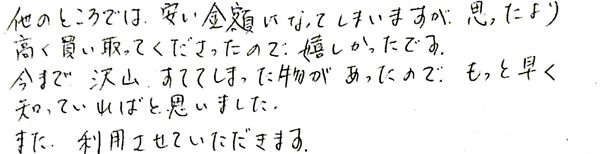 他のところでは、安い金額になってしまいますが、思ったより
高く買い取ってくださったので、嬉しかったです。
今まで、沢山、すててしまった物があったので、もっと早く
知っていればと思いました。
また、利用させていただきます。